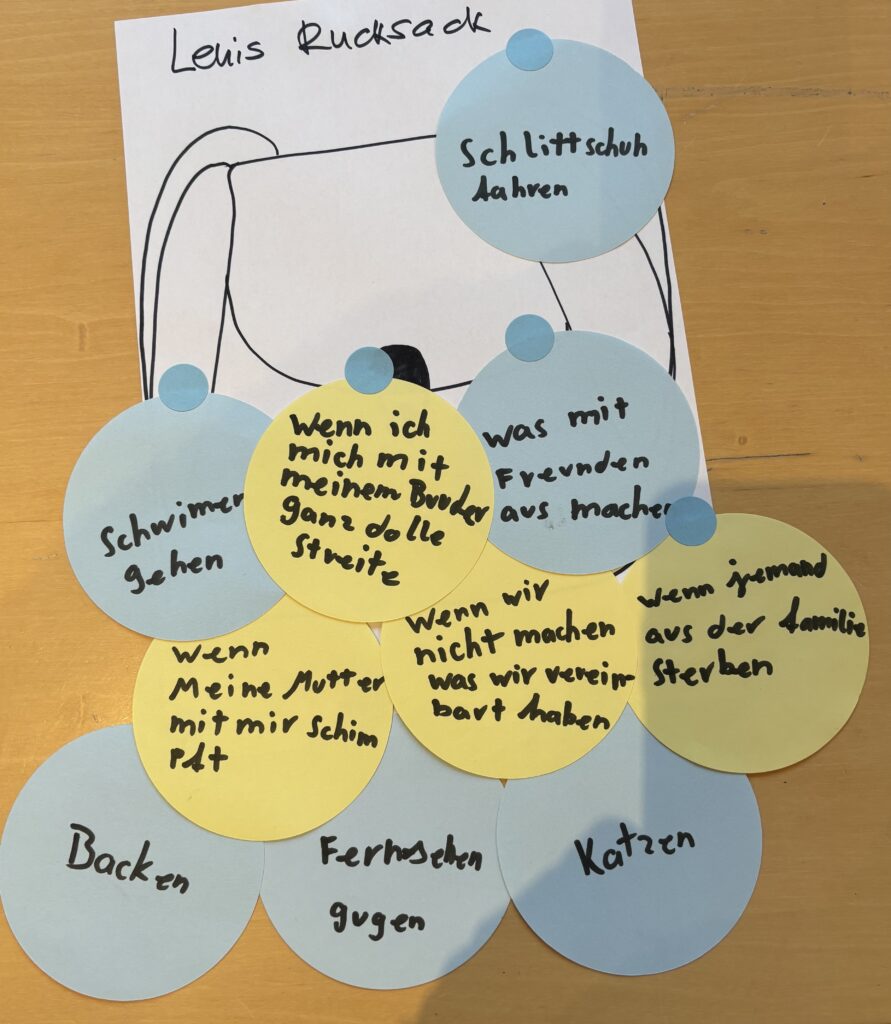 Lenis Rucksack
Schlittschuh
fahren
Schwimen
gehen
Wenn ich
mich mit
meinem Bruder
ganz dolle
Streite
was mit
Freunden
aus machen
Wenn
Meine Mutter
mit mir Schim
Pft
Wenn wir
nicht machen
was wir verein
bart haben
wenn jemand
aus der familie
Sterben
Backen
Fernsehen
gugen
Katzen